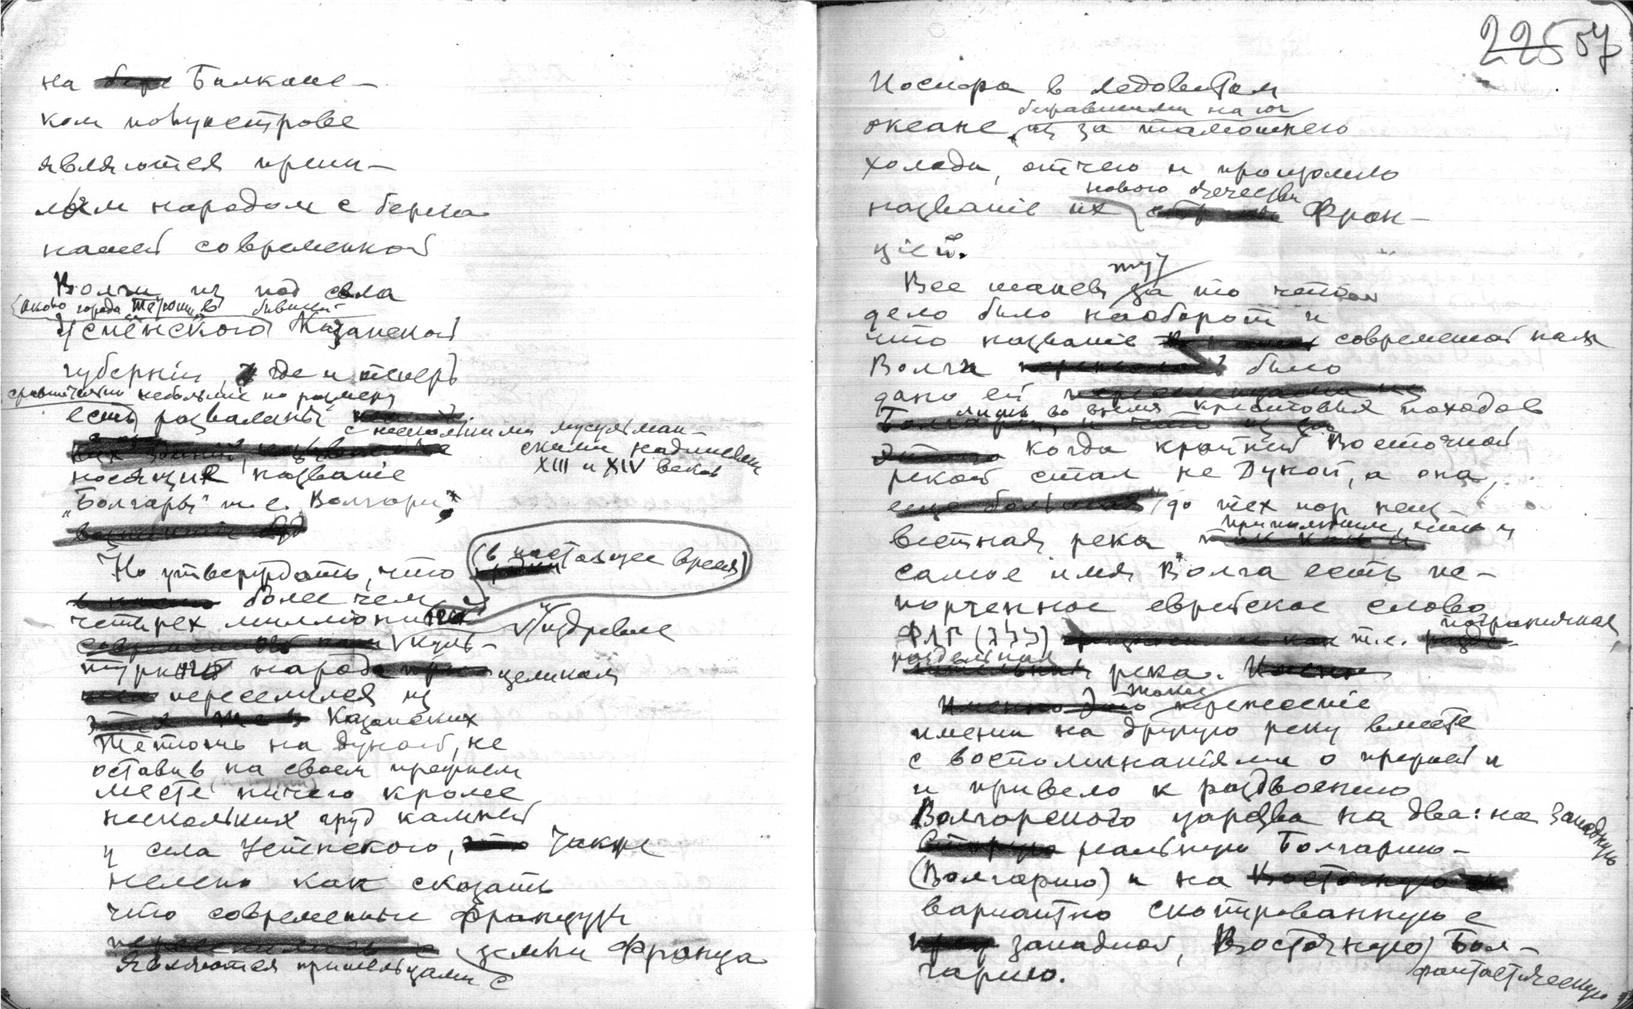 на Балкане-
ком полуострове
являются приш-
лым народом с берега
нашей современной
Волги из под села
(около города Тетюши, в бывшей
Успенского Казанской
губернии где и теперь
сравнительно небольшие по размеру
есть развалины
с несколькими мусульман-
скими надписями
XIII и XIV веков
носящия название
„Болгары" т. е. Волгары.
Но утверждать, что
(в настоящее время)
более чем
четырех миллионный
издревле
куль-
турный народ целиком
переселился из
Казанских
Тетюшь на Дунай, не
оставив на своем прежнем
месте ничего кроме
нескольких груд камней
у села Успенского, также
нелепо как сказать
что современные французы
земли Франца
являются пришельцами с
225 57
Иосифа в Ледовитом
бежавшими на юг
океане, из за тамошнего
холода, отчего и произошло
нового отечества
название их Фран-
цией.
Все шансы за то
тут
дело было наоборот и
что название современной нам
Волги было
дано ей
лишь во время крестовых походов
когда крайней Восточной
рекой стал не Дунай, а она,
до тех пор неиз-
вестная река
самое имя Волга есть ис-
порченное еврейское слово
ФЛГ (פלג) т.е. пограничная,
раздельная река.
такое перенесение
имени на другую реку вместе
с воспоминаниями о прежней
и привело к раздвоению
Волгарского царства на два: на Западную
реальную Болгарию-
(Волгарию) и на
вариантно скопированную с
западной, Восточную Бол-
гарию.
фантастическую